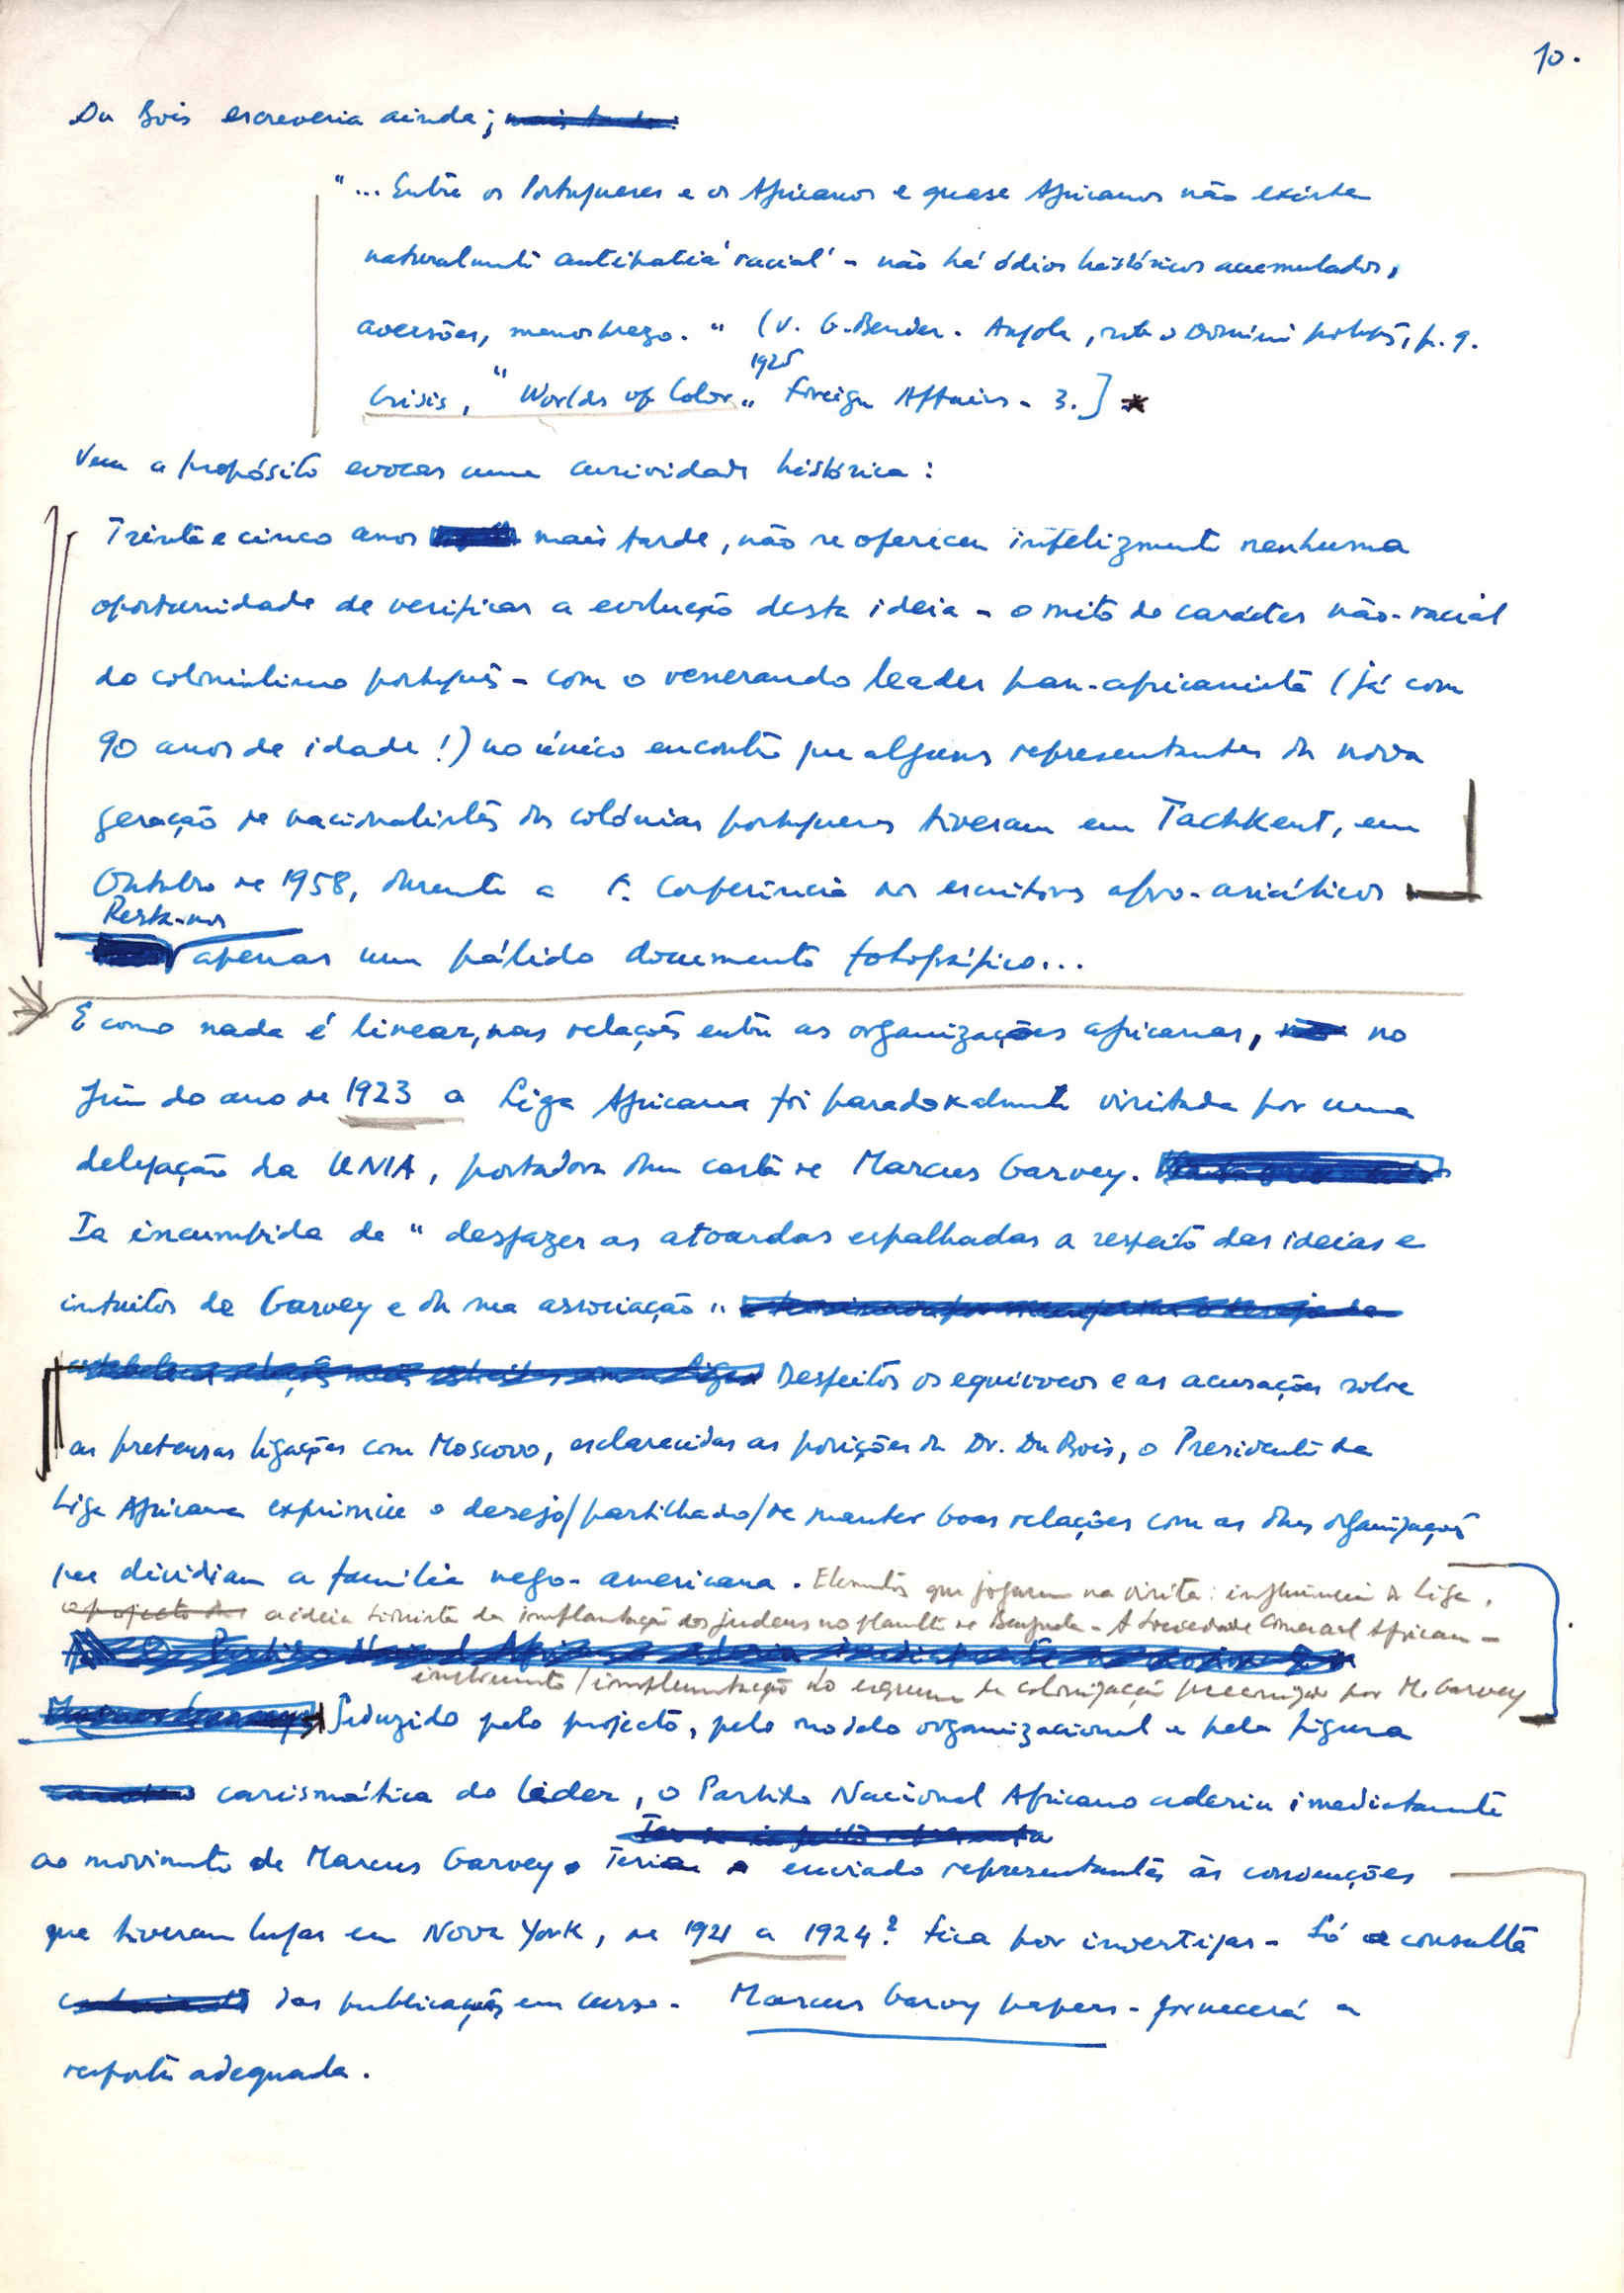 10.
Du Bois escreveria ainda;
"... Entre os Portugueses e os Africanos e quase Africanos não existe
naturalmente antipatia 'racial' - não há ódios históricos acumulados,
aversões, menosprezo." (V. G. Bender. Angola, sob o Domínio português, p. 9.
1925
Crisis, "Worlds of Color" Foreign Affairs - 3.] *
Vem a propósito evocar uma curiosidade histórica:
Trinta e cinco anos mais tarde, não se ofereceu infelizmente nenhuma
oportunidade de verificar a evolução desta ideia - o mito do carácter não-racial
do colonialismo português - com o venerando leader pan-africanista (já com
90 anos de idade!) no único encontro que alguns representantes da nova
geração de nacionalistas das colónias portuguesas tiveram em Tachkent, em
Outubro de 1958, durante a 1ª. Conferência dos escritores afro-asiáticos
Resta-nos
apenas um pálido documento fotográfico...
E como nada é linear, nas relações entre as organizações africanas, no
fim do ano de 1923 a Liga Africana foi paradoxalmente visitada por uma
delegação da UNIA, portadora duma carta de Marcus Garvey.
Ia incumbida de "desfazer as atoardas espalhadas a respeito das ideias e
intuitos de Garvey e da sua associação"
Desfeitos os equívocos e as acusações sobre
as pretensas ligações com Moscovo, esclarecidas as posições do Dr. Du Bois, o Presidente da
Liga Africana exprimiu o desejo/partilhado/de manter boas relações com as duas organizações
que dividiam a família negro-americana. Elementos que jogaram na visita: influência da Liga,
o projecto dos a ideia sionista da implantação dos judeus no planalto de Benguela - A Sociedade Comercial Africana -
instrumento/implementação do esquema de colonização preconizado por M. Garvey
Seduzido pelo projecto, pelo modelo organizacional e pela figura
carismática do leader, o Partido Nacional Africano aderiu imediatamente
ao movimento de Marcus Garvey. Teria enviado representantes às convenções
que tiveram lugar em Nova York, de 1921 a 1924? Fica por investigar - Só a consulta
das publicações em curso - Marcus Garvey papers - fornecerá a
resposta adequada.